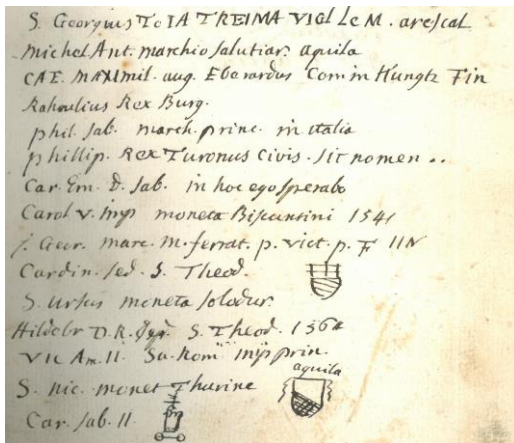 S. Georgius ToIA TREIMA VIGL Le M. arescal
Michel Ant. marchio salutiar. aquila
CAE. MAXImil. aug. Eberardus Com in Kungtz Fin
Rahoulius Rex Burg.
phil. sab. march. princ. in italia
phillip. Rex Turonus Civis. sit nomen ..
Car. Em. D. sab. in hoc ego sperabo
Carol v. imp moneta Bisuntini 1541
Geor. marc. m. ferrat. p. vict. p. F IIN
Cardin. sed. S. Theod.
S. Ursus moneta solodur.
Hildebr D. R. S. Theod.
Vic Am. II. Sa. Rom imp prin.
aquila
S. nic. monet Thurine
Car. sab. II.